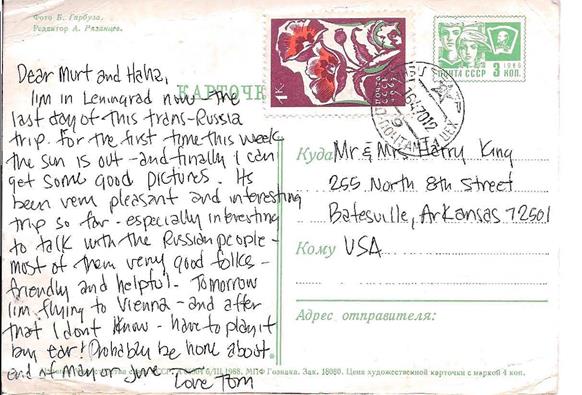 Фото Б. Гарбуза.
Редактор А. Рязанцев.
КАРТОЧК
Dear Murt and Haha,
I'm in Leningrad now - the
last day of this trans-Russia
trip. For the first time this week
the sun is out - and finally I can
get some good pictures. Its
been very pleasant and interesting
trip so far - especially interesting
to talk with the Russian people -
most of them very good folks -
friendly and helpful. Tomorrow
I'm flying to Vienna - and after
that I dont know - have to play it
buy ear! Probably be home about
end of May or June
Love Tom
1К
ПОЧТА СССР
1966
3 КОП.
Куда
Mr & Mrs Harry King
255 North 8th Street
Batesville, Arkansas 72501
Кому
USA
Адрес отправителя:
6/III 1968. МПФ Гознака. Зак. 18080. Цена художественной карточки с маркой 4 коп.